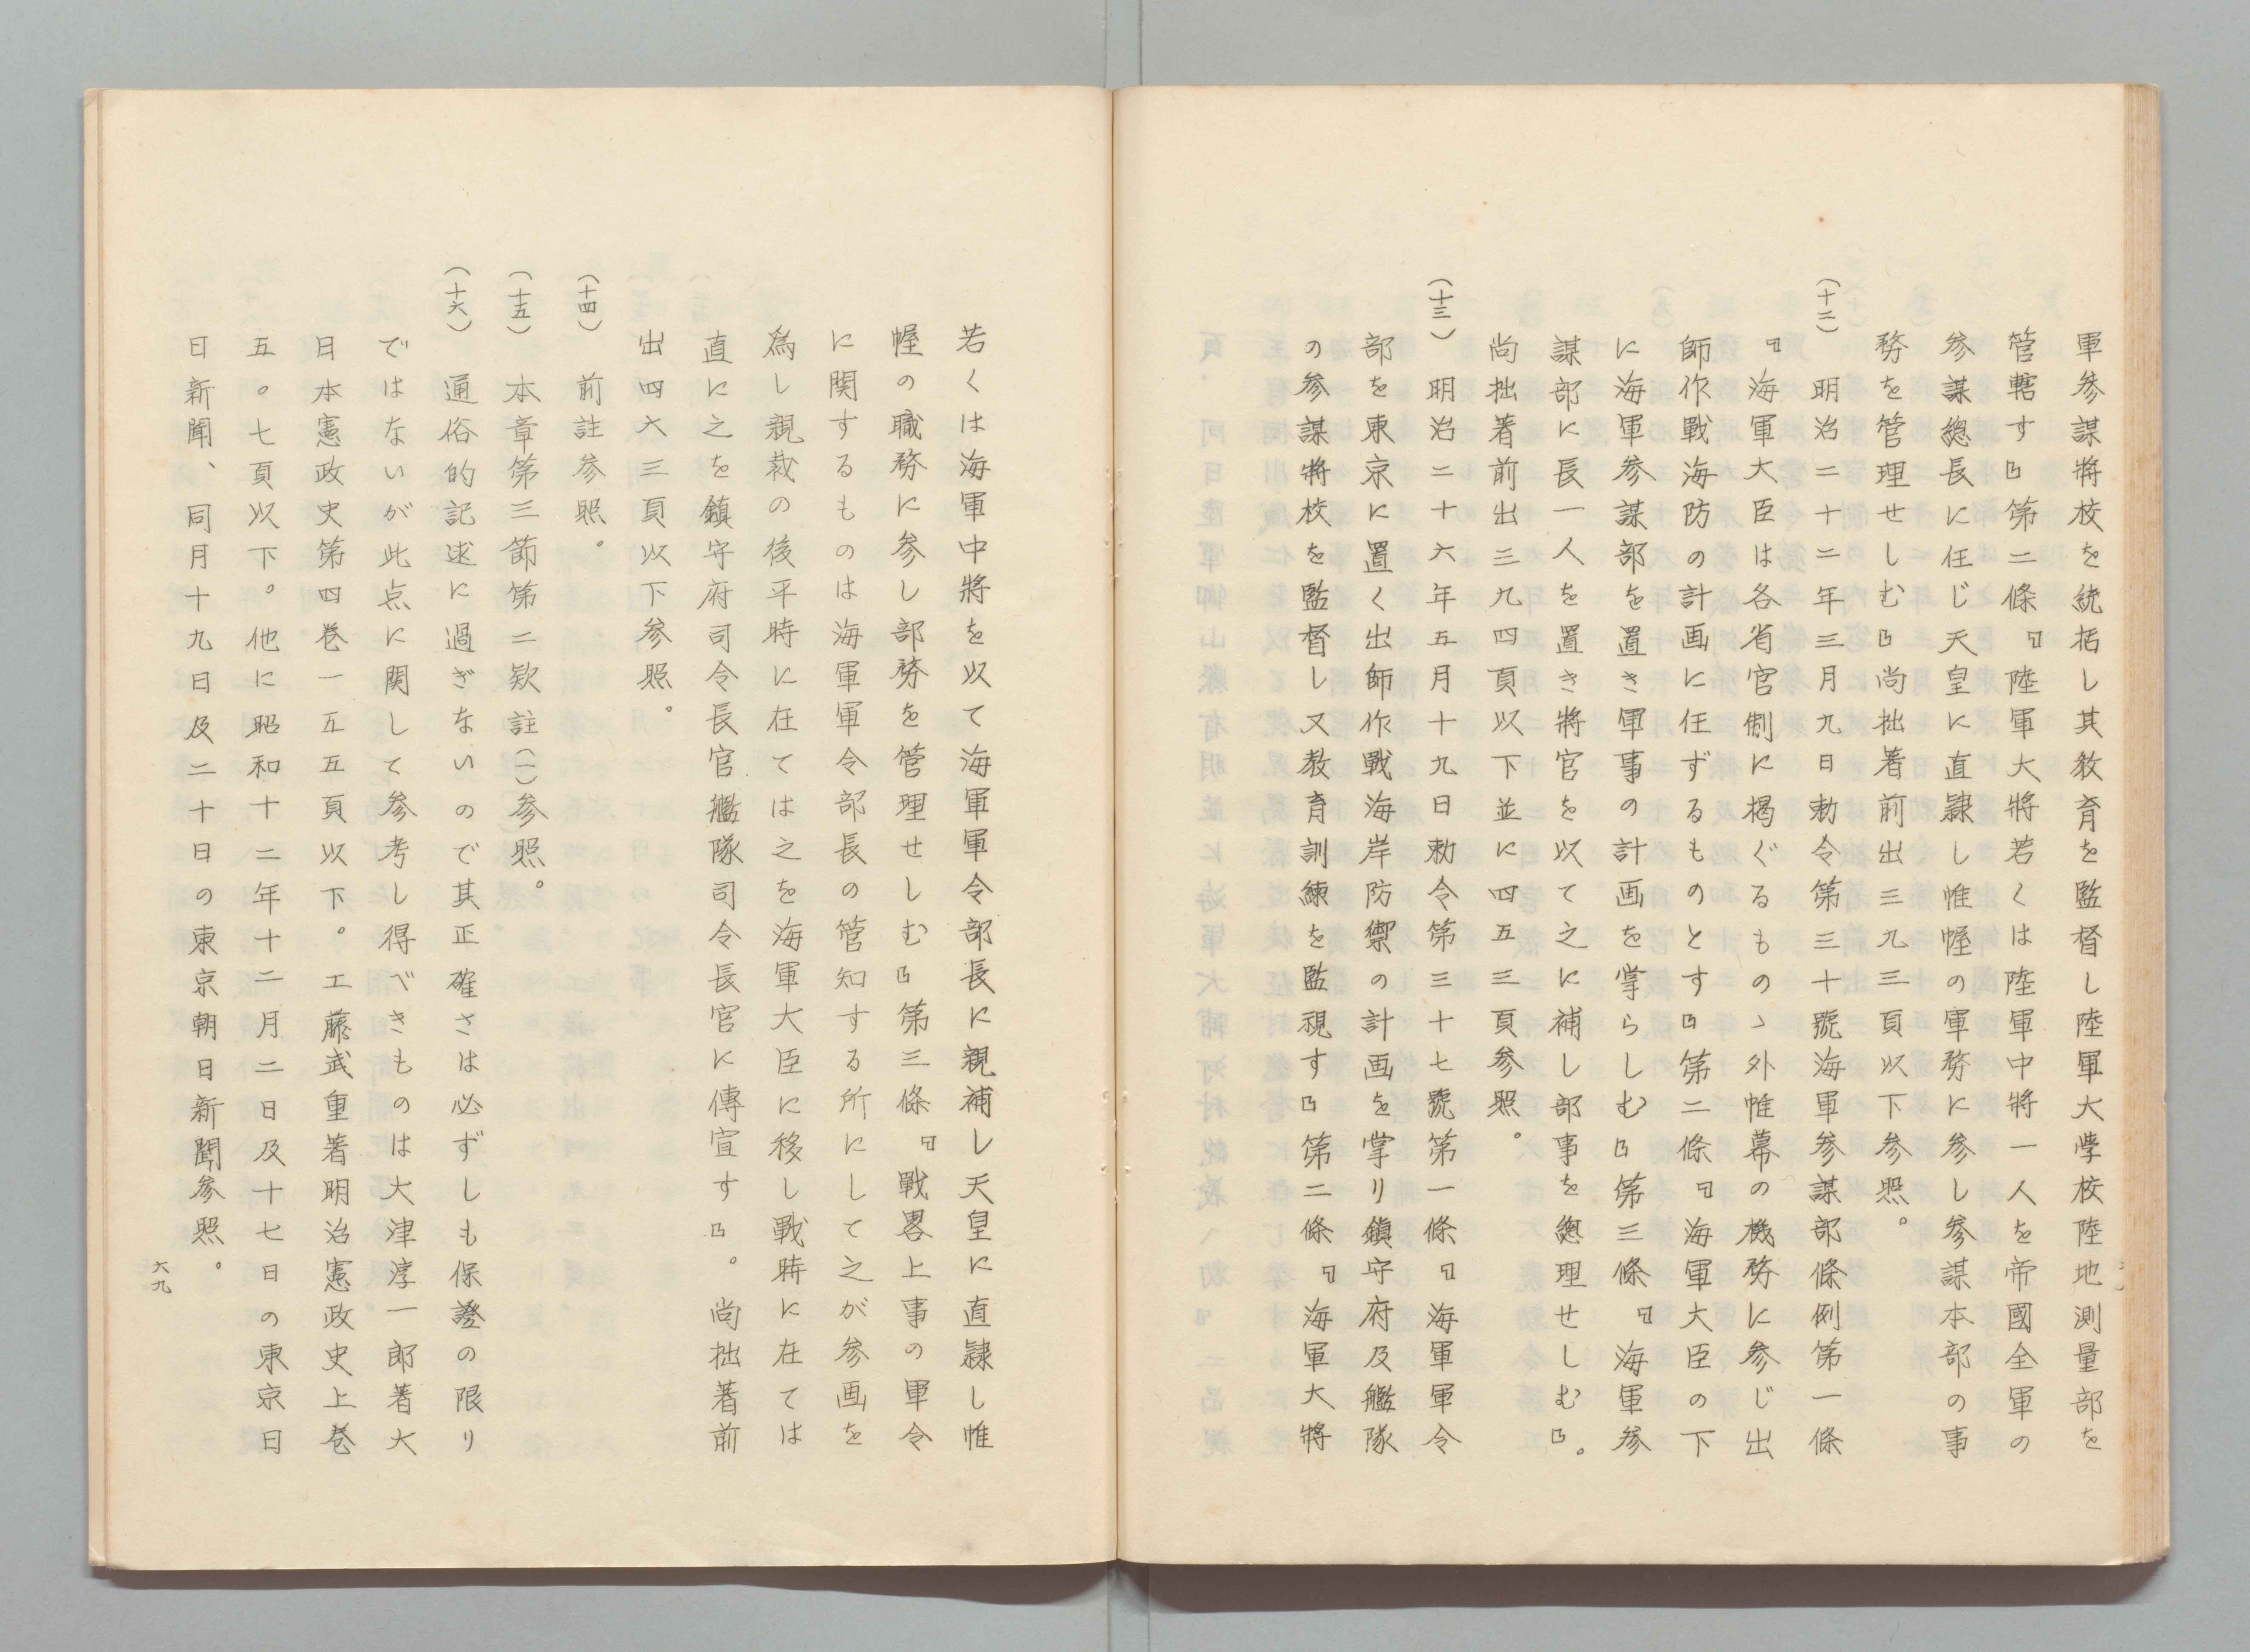 軍参謀將校を統括し其教育を監督し陸軍大學校陸地測量部を
管轄す』第二條『陸軍大將若くは陸軍中將一人を帝國全軍の
参謀總長に任じ天皇に直隷し惟幄の軍務に参し参謀本部の事
務を管理せしむ』尚拙著前出三九三頁以下参照。
(十二) 明治二十二年三月九日勅令第三十號海軍参謀部條例第一條
『海軍大臣は各省官制に揭ぐるものゝ外惟幕の機務に参じ出
師作戰海防の計画に任ずるものとす』第二條『海軍大臣の下
に海軍参謀部を置き軍事の計画を掌らしむ』第三條『海軍参
謀部に長一人を置き將官を以て之に補し部事を總理せしむ』。
尚拙著前出三九四頁以下並に四五三頁参照。
(十三) 明治二十六年五月十九日勅令第三十七號第一條『海軍軍令
部を東京に置く出師作戰海岸防禦の計画を掌り鎭守府及艦隊
の参謀將校を監督し又教育訓練を監視す』第二條『海軍大將
若くは海軍中將を以て海軍軍令部長に親補し天皇に直隷し惟
幄の職務に参し部務を管理せしむ』第三條『戰畧上事の軍令
に関するものは海軍軍令部長の管知する所にして之が参画を
爲し親裁の後平時に在ては之を海軍大臣に移し戰時に在ては
直に之を鎭守府司令長官艦隊司令長官に傳宣す』。尚拙著前
出四六三頁以下参照。
(十四) 前註参照。
(十五) 本章第三節第二欵註(一)参照。
(十六) 通俗的記述に過ぎないので其正確さは必ずしも保證の限り
ではないが此点に関して参考し得べきものは大津淳一郎著大
日本憲政史第四巻一五五頁以下。工藤武重著明治憲政史上巻
五〇七頁以下。他に昭和十二年十二月二日及十七日の東京日
日新聞、同月十九日及二十日の東京朝日新聞参照。
六九